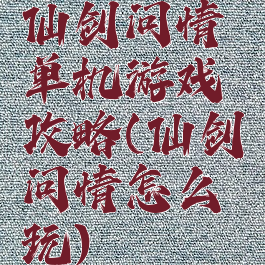 仙创问情
单机游戏
攻略(仙创
问情怎么
玩)